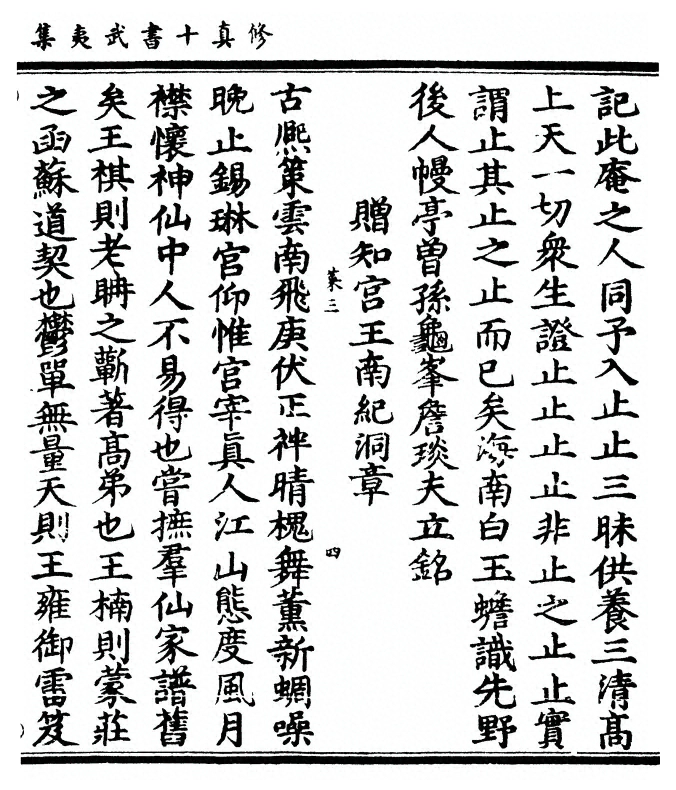 修真十書武夷集
記此庵之人同予入止止三昧供養三清高
上天一切衆生證止止止止非止之止止實
謂止其止之止而已矣海南白玉蟾識先野
後人幔亭曾孫龜峯詹琰夫立銘
贈知宮王南紀洞章
菓三
四
古熈策雲南飛庚伏正神晴槐舞薰新蜩噪
晚止錫琳宮仰惟宮宰眞人江山態度風月
襟懷神仙中人不易得也嘗撫羣仙家譜舊
矣王棋則老聃之蘄著高弟也王楠則蒙莊
之函蘇道契也鬱單無量天則王雍御雷笈